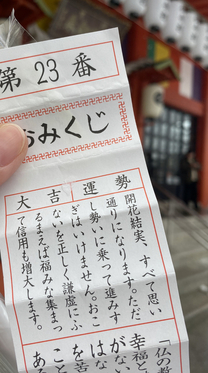 第23番
おみくじ
運勢
大吉
開花結実、すべて思い
通りになります。ただ
し勢いに乗って進みす
ぎはいけません。おこ
ないを正しく謙虚にふ
るまえば福みな集まっ
て信用も増大します。
「仏の
幸福と
がない
はな
を苦
こと
あ